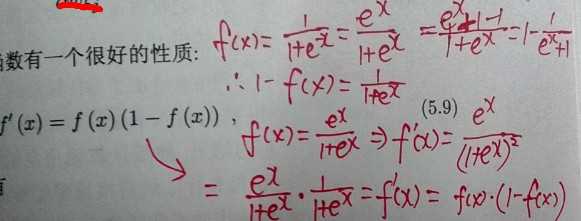 函数有一个很好的性质:
f(x) = 1/(1+e^-x) = e^x/(1+e^x) = (e^x+1-1)/(1+e^x) = 1 - 1/(e^x+1)
∴ 1 - f(x) = 1/(1+e^x)
f'(x) = f(x)(1 − f(x)) , (5.9)
f(x) = e^x/(1+e^x) ⇒ f'(x) = e^x/(1+e^x)^2
= e^x/(1+e^x) · 1/(1+e^x) = f'(x) = f(x)·(1-f(x))